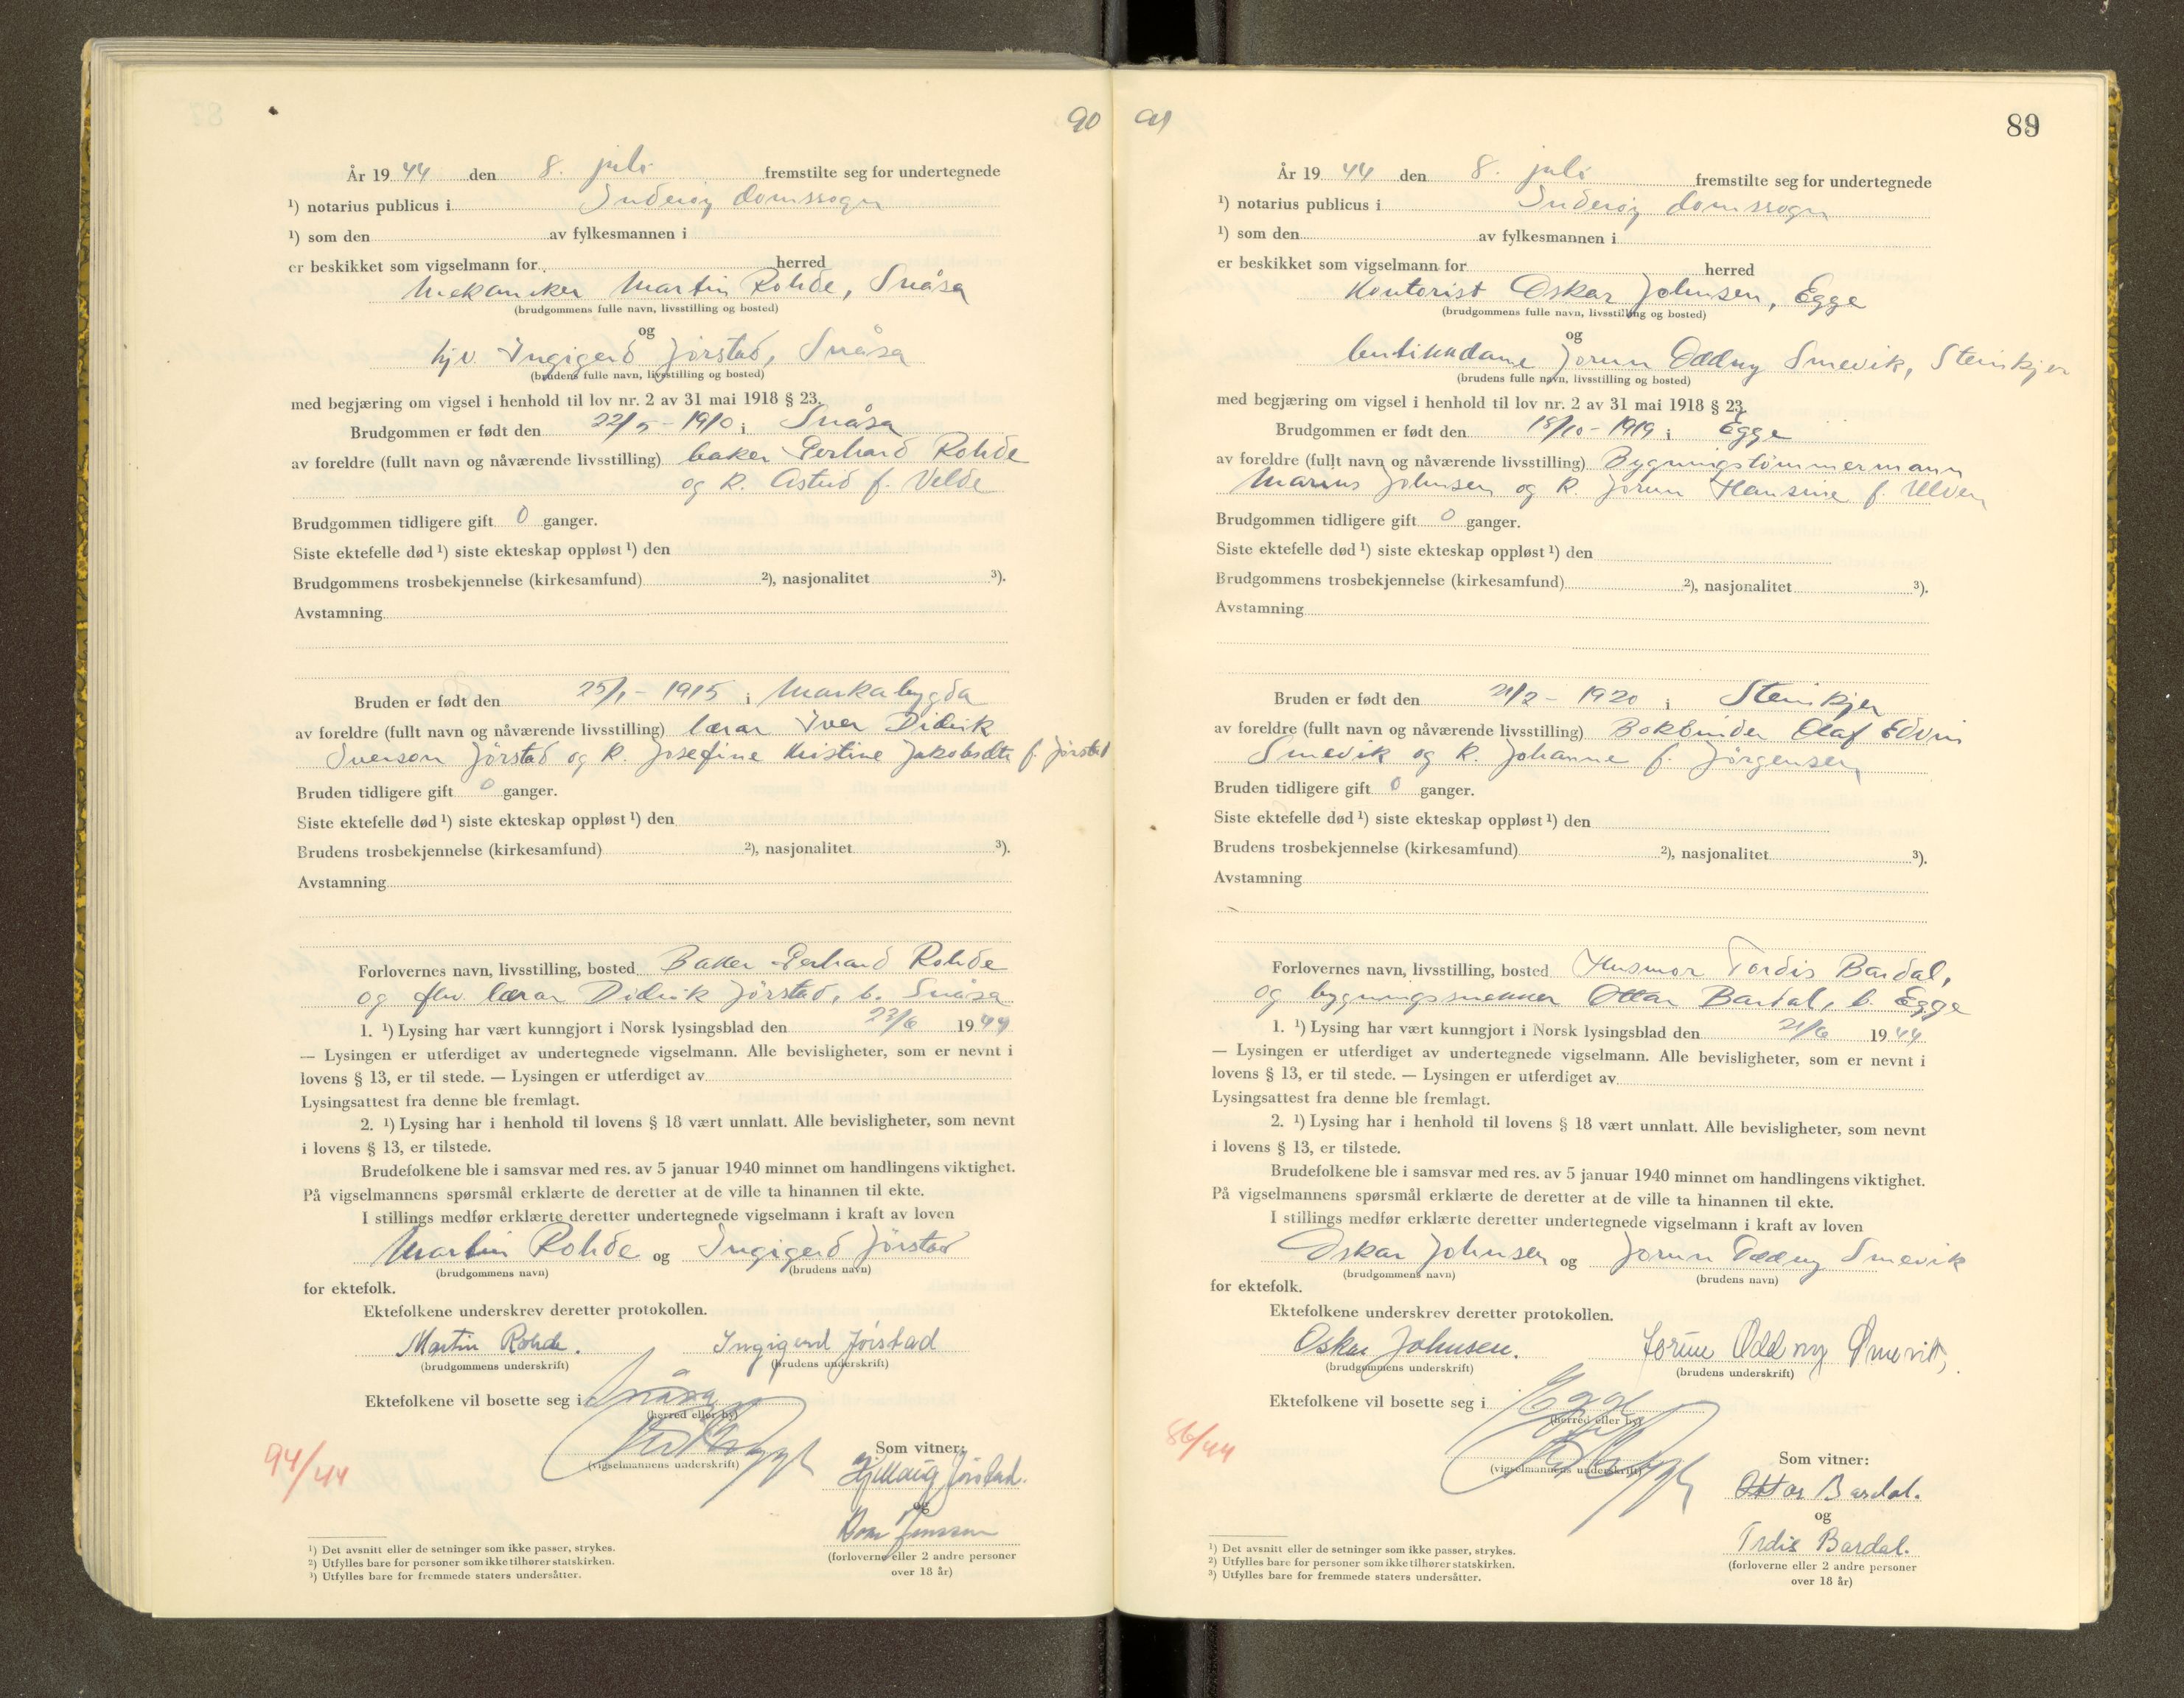 90
År 19 44 den 8. juli fremstilte seg for undertegnede
¹) notarius publicus i Inderøy domssogn
¹) som den av fylkesmannen i
er beskikket som vigselmann for herred
Mekaniker Martin Rohde, Snåsa
(brudgommens fulle navn, livsstilling og bosted)
og
hjv Ingigerd Jørstad, Snåsa
(brudens fulle navn, livsstilling og bosted)
med begjæring om vigsel i henhold til lov nr. 2 av 31 mai 1918 § 23.
Brudgommen er født den 22/5 - 1910 i Snåsa
av foreldre (fullt navn og nåværende livsstilling) baker Gerhard Rohde
og k. Astrid f. Velde
Brudgommen tidligere gift 0 ganger.
Siste ektefelle død ¹) siste ekteskap oppløst ¹) den
Brudgommens trosbekjennelse (kirkesamfund) ²), nasjonalitet ³).
Avstamning
Bruden er født den 25/1 - 1915 i Markabygda
av foreldre (fullt navn og nåværende livsstilling) lærar Iver Didrik
Iverson Jørstad og k. Josefine Kristine Jakobsdtr f. Jørstad
Bruden tidligere gift 0 ganger.
Siste ektefelle død ¹) siste ekteskap oppløst ¹) den
Brudens trosbekjennelse (kirkesamfund) ²), nasjonalitet ³).
Avstamning
Forlovernes navn, livsstilling, bosted Baker Gerhard Rohde
og fhv. lærar Didrik Jørstad, b. Snåsa
1. ¹) Lysing har vært kunngjort i Norsk lysingsblad den 23/6 19 44
— Lysingen er utferdiget av undertegnede vigselmann. Alle bevisligheter, som er nevnt i
lovens § 13, er til stede. — Lysingen er utferdiget av
Lysingsattest fra denne ble fremlagt.
2. ¹) Lysing har i henhold til lovens § 18 vært unnlatt. Alle bevisligheter, som nevnt
i lovens § 13, er tilstede.
Brudefolkene ble i samsvar med res. av 5 januar 1940 minnet om handlingens viktighet.
På vigselmannens spørsmål erklærte de deretter at de ville ta hinannen til ekte.
I stillings medfør erklærte deretter undertegnede vigselmann i kraft av loven
Martin Rohde og Ingigerd Jørstad
(brudgommens navn) (brudens navn)
for ektefolk.
Ektefolkene underskrev deretter protokollen.
Martin Rohde. Ingigerd Jørstad
(brudgommens underskrift) (brudens underskrift)
Ektefolkene vil bosette seg i Snåsa
(herred eller by)
(vigselmannens underskrift)
94/44
Som vitner:
Jørstad.
og
(forloverne eller 2 andre personer
over 18 år)
¹) Det avsnitt eller de setninger som ikke passer, strykes.
²) Utfylles bare for personer som ikke tilhører statskirken.
³) Utfylles bare for fremmede staters undersåtter.
91
89
År 19 44 den 8. juli fremstilte seg for undertegnede
¹) notarius publicus i Inderøy domssogn
¹) som den av fylkesmannen i
er beskikket som vigselmann for herred
Kontorist Oskar Johnsen, Egge
(brudgommens fulle navn, livsstilling og bosted)
og
butikkdame Jorun Oddny Smevik, Steinkjer
(brudens fulle navn, livsstilling og bosted)
med begjæring om vigsel i henhold til lov nr. 2 av 31 mai 1918 § 23.
Brudgommen er født den 18/10 - 1919 i Egge
av foreldre (fullt navn og nåværende livsstilling) Bygningstømmermann
Marius Johnsen og k. Jorun Hansine f. Ulven
Brudgommen tidligere gift 0 ganger.
Siste ektefelle død ¹) siste ekteskap oppløst ¹) den
Brudgommens trosbekjennelse (kirkesamfund) ²), nasjonalitet ³).
Avstamning
Bruden er født den 21/2 - 1920 i Steinkjer
av foreldre (fullt navn og nåværende livsstilling) Bokbinder Olaf Edvin
Smevik og k. Johanne f. Jørgensen
Bruden tidligere gift 0 ganger.
Siste ektefelle død ¹) siste ekteskap oppløst ¹) den
Brudens trosbekjennelse (kirkesamfund) ²), nasjonalitet ³).
Avstamning
Forlovernes navn, livsstilling, bosted Husmor Tordis Bardal,
og bygningssnekker Ottar Bardal, b. Egge
1. ¹) Lysing har vært kunngjort i Norsk lysingsblad den 21/6 19 44
— Lysingen er utferdiget av undertegnede vigselmann. Alle bevisligheter, som er nevnt i
lovens § 13, er til stede. — Lysingen er utferdiget av
Lysingsattest fra denne ble fremlagt.
2. ¹) Lysing har i henhold til lovens § 18 vært unnlatt. Alle bevisligheter, som nevnt
i lovens § 13, er tilstede.
Brudefolkene ble i samsvar med res. av 5 januar 1940 minnet om handlingens viktighet.
På vigselmannens spørsmål erklærte de deretter at de ville ta hinannen til ekte.
I stillings medfør erklærte deretter undertegnede vigselmann i kraft av loven
Oskar Johnsen og Jorun Oddny Smevik
(brudgommens navn) (brudens navn)
for ektefolk.
Ektefolkene underskrev deretter protokollen.
Oskar Johnsen. Jorun Oddny Smevik,
(brudgommens underskrift) (brudens underskrift)
Ektefolkene vil bosette seg i Egge
(herred eller by)
(vigselmannens underskrift)
86/44
Som vitner:
Ottar Bardal.
og
Trdis Bardal.
(forloverne eller 2 andre personer
over 18 år)
¹) Det avsnitt eller de setninger som ikke passer, strykes.
²) Utfylles bare for personer som ikke tilhører statskirken.
³) Utfylles bare for fremmede staters undersåtter.